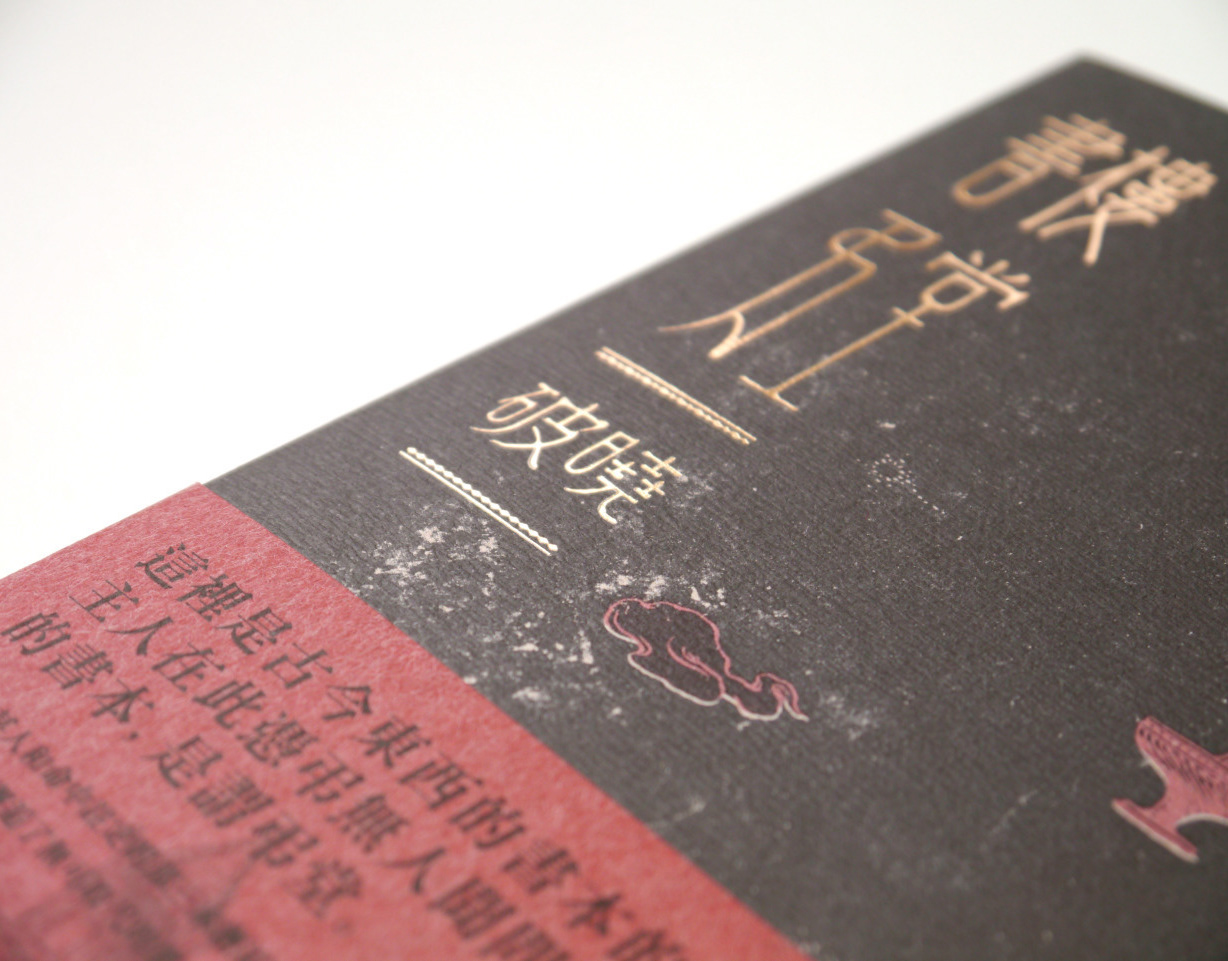 書樓
弔堂
破曉
這裡是古今東西的書本的
主人在此憑弔無人聞問
的書本，是謂弔堂。